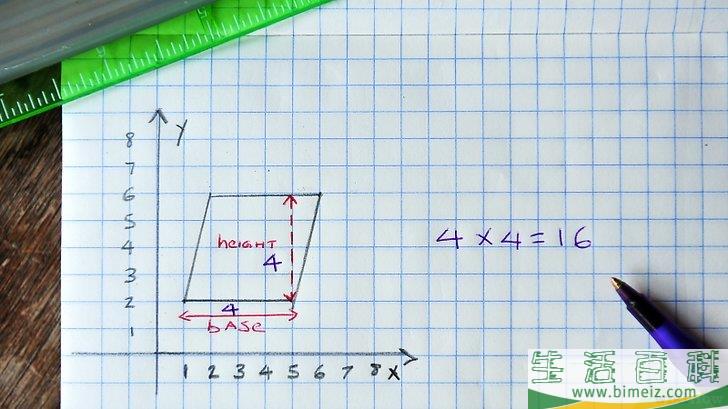 y
8
7
6
5
4
3
2
1
height
4
4
bASe
1 2 3 4 5 6 7 8 x
4 x 4 = 16
生活百科
www.bimeiz.com